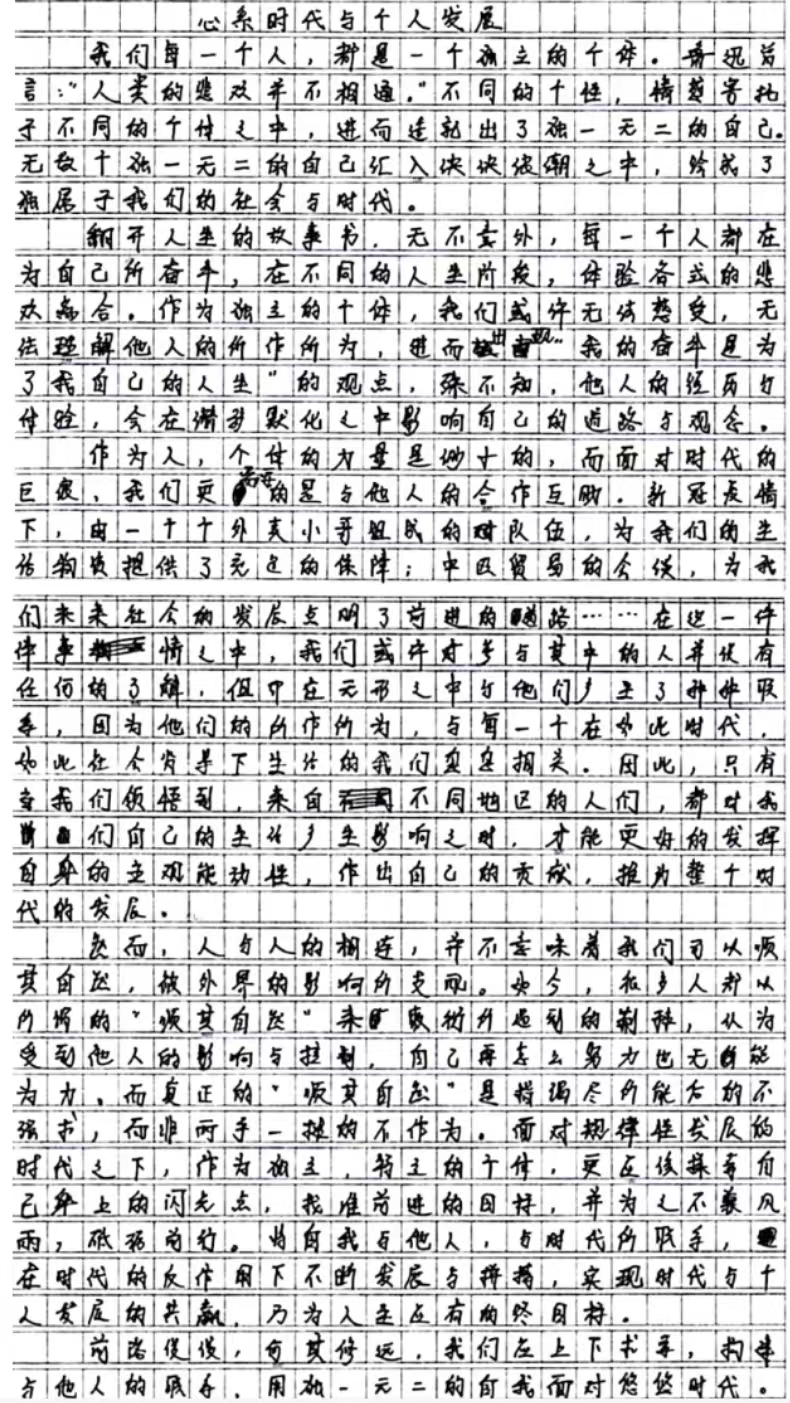 心系时代与个人发展
我们每一个人，都是一个独立的个体。鲁迅曾
言：“人类的悲欢并不相通。”不同的个性，情愁寄托
于不同的个体之中，进而造就出了独一无二的自己。
无数个独一无二的自己汇入泱泱浪潮之中，绘成了
独属于我们的社会与时代。
翻开人生的故事书，无不意外，每一个人都在
为自己所奋斗，在不同的人生阶段，体验各式的悲
欢离合。作为独立的个体，我们或许无法感受，无
法理解他人的所作所为，进而出现“我的奋斗是为
了我自己的人生”的观点，殊不知，他人的经历与
体验，会在潜移默化之中影响自己的道路与观念。
作为人，个体的力量是渺小的，而面对时代的
巨浪，我们更需要的是与他人的合作互助。新冠疫情
下，由一个个外卖小哥组成的队伍，为我们的生
活物资提供了充足的保障；中医贸易的会谈，为我
们未来社会的发展点明了前进的道路……在这一件
件事情之中，我们或许对参与其中的人并没有
任何的了解，但却在无形之中与他们产生了种种联
系，因为他们的所作所为，与每一个在如此时代，
如此社会背景下生活的我们息息相关。因此，只有
当我们领悟到，来自不同地区的人们，都对我
们自己的生活产生影响之时，才能更好的发挥
自身的主观能动性，作出自己的贡献，推为整个时
代的发展。
然而，人与人的相连，并不意味着我们可以顺
其自然，被外界的影响所支配。如今，很多人都以
所谓的“顺其自然”来敷衍所遇到的荆棘，认为
受到他人的影响与控制，自己再怎么努力也无能
为力。而真正的“顺其自然”是指竭尽所能后的不
强求，而非两手一摊的不作为。面对规律性发展的
时代之下，作为独立，特立的个体，更应该探寻自
己身上的闪光点，找准前进的目标，并为之不畏风
雨，砥砺前行。将自我与他人，与时代所联手，
在时代的反作用下不断发展与拼搏，实现时代与个
人发展的共赢，乃为人生应有的终目标。
前路漫漫，奇其修远，我们在上下求寻，构建
与他人的联系，用独一无二的自我面对悠悠时代。